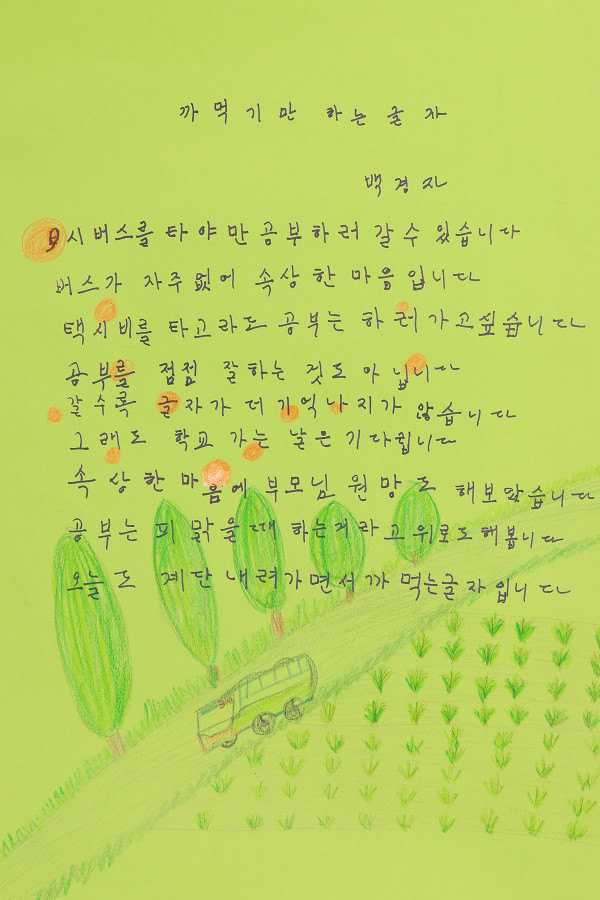 까먹기만 하는 글자
백경자
9시버스를 타야만 공부하러 갈 수 있습니다
버스가 자주없에 속상한 마음입니다
택시비를 타고라도 공부는 하러가고싶습니다
공부를 점점 잘하는 것도 아닙니다
갈수록 글자가 더 기억나지가 않습니다
그래도 학교 가는 날은 기다립니다
속상한 마음에 부모님 원망도 해보았습니다
공부는 피 맑을때 하는거라고 위로도해봅니다
오늘도 계단 내려가면서 까먹는글자입니다